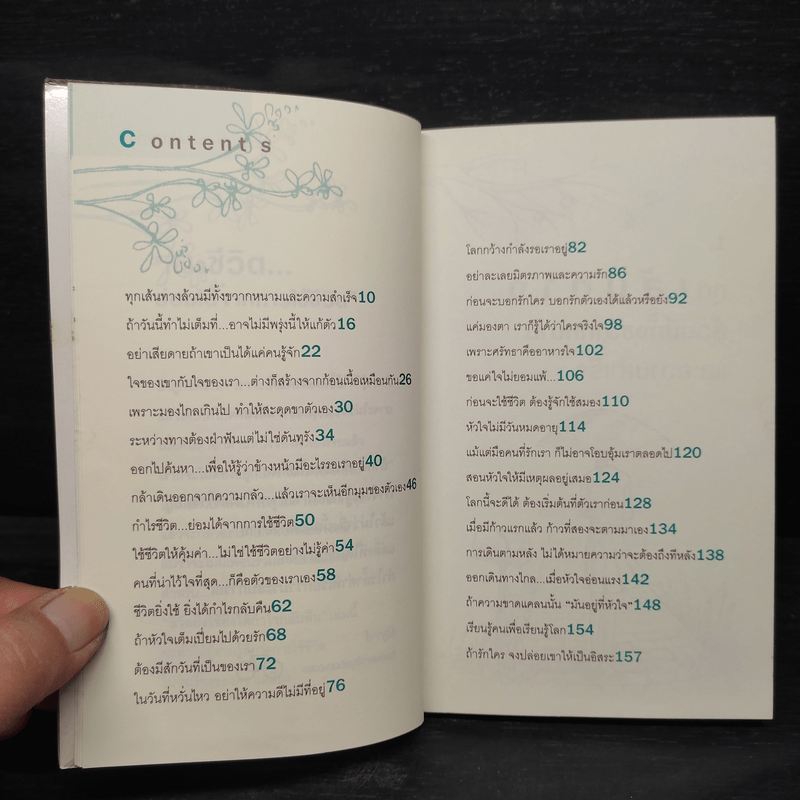 Contents
ทุกเส้นทางล้วนมีทั้งขวากหนามและความสำเร็จ10
ถ้าวันนี้ทำไม่เต็มที่...อาจไม่มีพรุ่งนี้ให้แก้ตัว16
อย่าเสียดายถ้าเขาเป็นได้แค่คนรู้จัก22
ใจของเขากับใจของเรา...ต่างก็สร้างจากก้อนเนื้อเหมือนกัน26
เพราะมองไกลเกินไป ทำให้สะดุดขาตัวเอง30
ระหว่างทางต้องฝ่าฟันแต่ไม่ใช่ดันทุรัง34
ออกไปค้นหา...เพื่อให้รู้ว่าข้างหน้ามีอะไรรอเราอยู่40
กล้าเดินออกจากความกลัว...แล้วเราจะเห็นอีกมุมของตัวเอง46
กำไรชีวิต...ย่อมได้จากการใช้ชีวิต50
ใช้ชีวิตให้คุ้มค่า...ไม่ใช่ใช้ชีวิตอย่างไม่รู้ค่า54
คนที่น่าไว้ใจที่สุด...ก็คือตัวของเราเอง58
ชีวิตยิ่งใช้ ยิ่งได้กำไรกลับคืน62
ถ้าหัวใจเต็มเปี่ยมไปด้วยรัก68
ต้องมีสักวันที่เป็นของเรา72
ในวันที่หวั่นไหว อย่าให้ความดีไม่มีที่อยู่76
โลกกว้างกำลังรอเราอยู่82
อย่าละเลยมิตรภาพและความรัก86
ก่อนจะบอกรักใคร บอกรักตัวเองได้แล้วหรือยัง92
แค่มองตา เราก็รู้ได้ว่าใครจริงใจ98
เพราะศรัทธาคืออาหารใจ102
ขอแค่ใจไม่ยอมแพ้...106
ก่อนจะใช้ชีวิต ต้องรู้จักใช้สมอง110
หัวใจไม่มีวันหมดอายุ114
แม้แต่มือคนที่รักเรา ก็ไม่อาจโอบอุ้มเราตลอดไป120
สอนหัวใจให้มีเหตุผลอยู่เสมอ124
โลกนี้จะดีได้ ต้องเริ่มต้นที่ตัวเราก่อน128
เมื่อมีก้าวแรกแล้ว ก้าวที่สองจะตามมาเอง134
การเดินตามหลัง ไม่ได้หมายความว่าจะต้องถึงทีหลัง138
ออกเดินทางไกล...เมื่อหัวใจอ่อนแรง142
ถ้าความขาดแคลนนั้น "มันอยู่ที่หัวใจ"148
เรียนรู้คนเพื่อเรียนรู้โลก154
ถ้ารักใคร จงปล่อยเขาให้เป็นอิสระ157